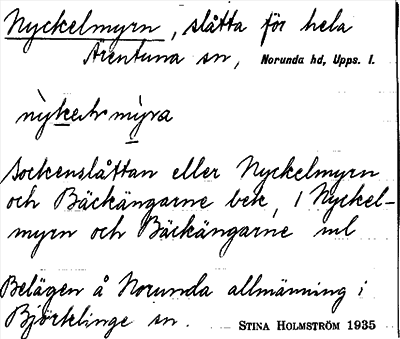 Nyckelmyrn, slåtta för hela
Ärentuna sn, Norunda hd, Upps. l.
Sockenslåttan eller Nyckelmyrn
och Bäckängarne bek, i Nyckel-
myrn och Bäckängarne ml
Belägen å Norunda allmänning i
Björklinge sn. STINA HOLMSTRÖM 1935